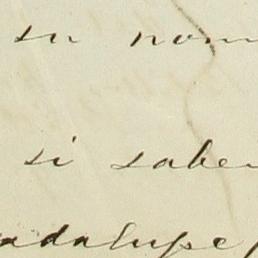 su nom
si saben
adalupe